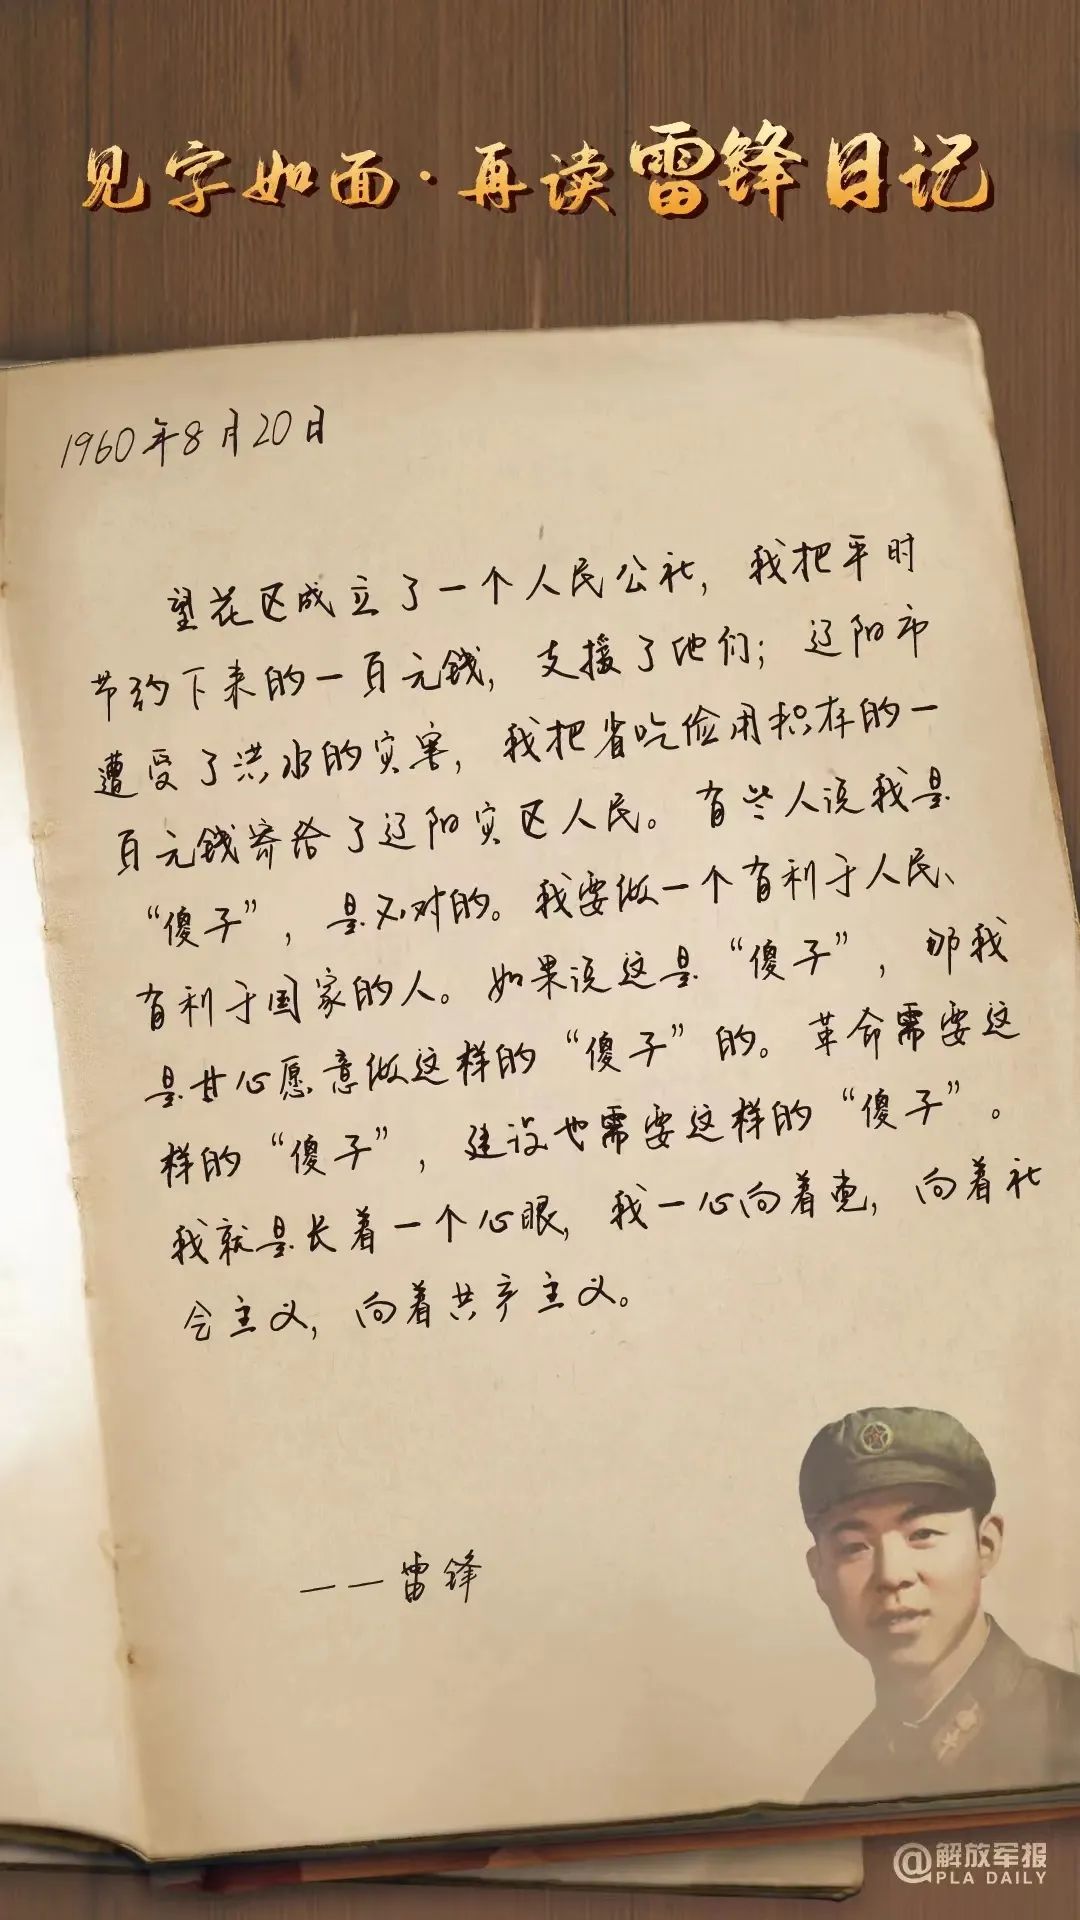 见字如面·再读雷锋日记
1960年8月20日
望花区成立了一个人民公社，我把平时
节约下来的一百元钱，支援了他们；辽阳市
遭受了洪水的灾害，我把省吃俭用积存的一
百元钱寄给了辽阳灾区人民。有些人说我是
“傻子”，是不对的。我要做一个有利于人民、
有利于国家的人。如果说这是“傻子”，那我
是甘心愿意做这样的“傻子”的。革命需要这
样的“傻子”，建设也需要这样的“傻子”。
我就是长着一个心眼，我一心向着党，向着社
会主义，向着共产主义。
——雷锋
@解放军报
PLA DAILY